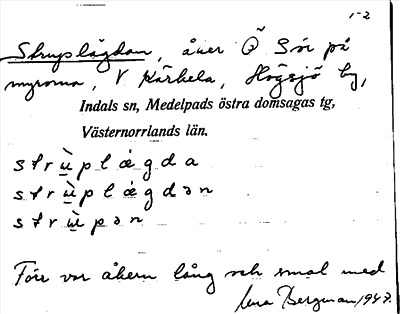 1-2
Strupslägdan, åker Ö Sör på
myrorna, V Kårhela, Högsjö by,
Indals sn, Medelpads östra domsagas tg,
Västernorrlands län.
strụ̀plægda
strụ̀plægdən
strụ̀pən
Förr var åkern lång och smal med
Lena Bergman, 1947.